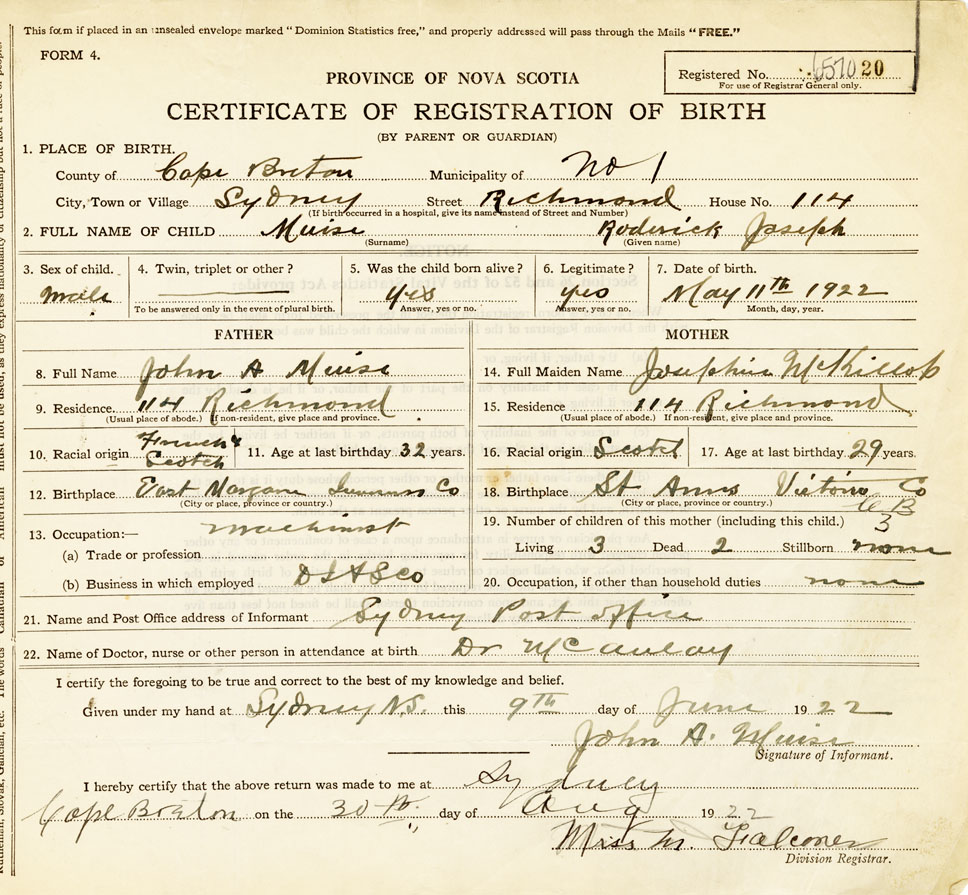 This form if placed in an unsealed envelope marked "Dominion Statistics free," and properly addressed will pass through the Mails "FREE."
FORM 4.
Registered No. 657020
For use of Registrar General only.
PROVINCE OF NOVA SCOTIA
CERTIFICATE OF REGISTRATION OF BIRTH
(BY PARENT OR GUARDIAN)
1. PLACE OF BIRTH.
County of Cape Breton Municipality of No 1
City, Town or Village Sydney Street Richmond House No. 114
(If birth occurred in a hospital, give its name instead of Street and Number)
2. FULL NAME OF CHILD Muise Roderick Joseph
(Surname) (Given name)
3. Sex of child. 4. Twin, triplet or other? 5. Was the child born alive? 6. Legitimate? 7. Date of birth.
male yes yes May 11th 1922
To be answered only in the event of plural birth. Answer, yes or no. Answer, yes or no. Month, day, year.
FATHER
8. Full Name John A Muise
9. Residence 114 Richmond
(Usual place of abode.) If non-resident, give place and province.
10. Racial origin French & Scotch 11. Age at last birthday 32 years.
12. Birthplace East Co
(City or place, province or country.)
13. Occupation:— machinist
(a) Trade or profession
(b) Business in which employed D I & S Co
MOTHER
14. Full Maiden Name Josephine McKillop
15. Residence 114 Richmond
(Usual place of abode.) If non-resident, give place and province.
16. Racial origin Scotch 17. Age at last birthday 29 years.
18. Birthplace St Anns Victoria Co
C B
(City or place, province or country.)
19. Number of children of this mother (including this child.) 3
Living 3 Dead 2 Stillborn none
20. Occupation, if other than household duties none
21. Name and Post Office address of Informant Sydney Post office
22. Name of Doctor, nurse or other person in attendance at birth Dr McAulay
I certify the foregoing to be true and correct to the best of my knowledge and belief.
Given under my hand at Sydney N.S. this 9th day of June 1922
John A. Muise
Signature of Informant.
I hereby certify that the above return was made to me at Sydney
Cape Breton on the 30th day of Aug 1922
Miss M. Falconer
Division Registrar.